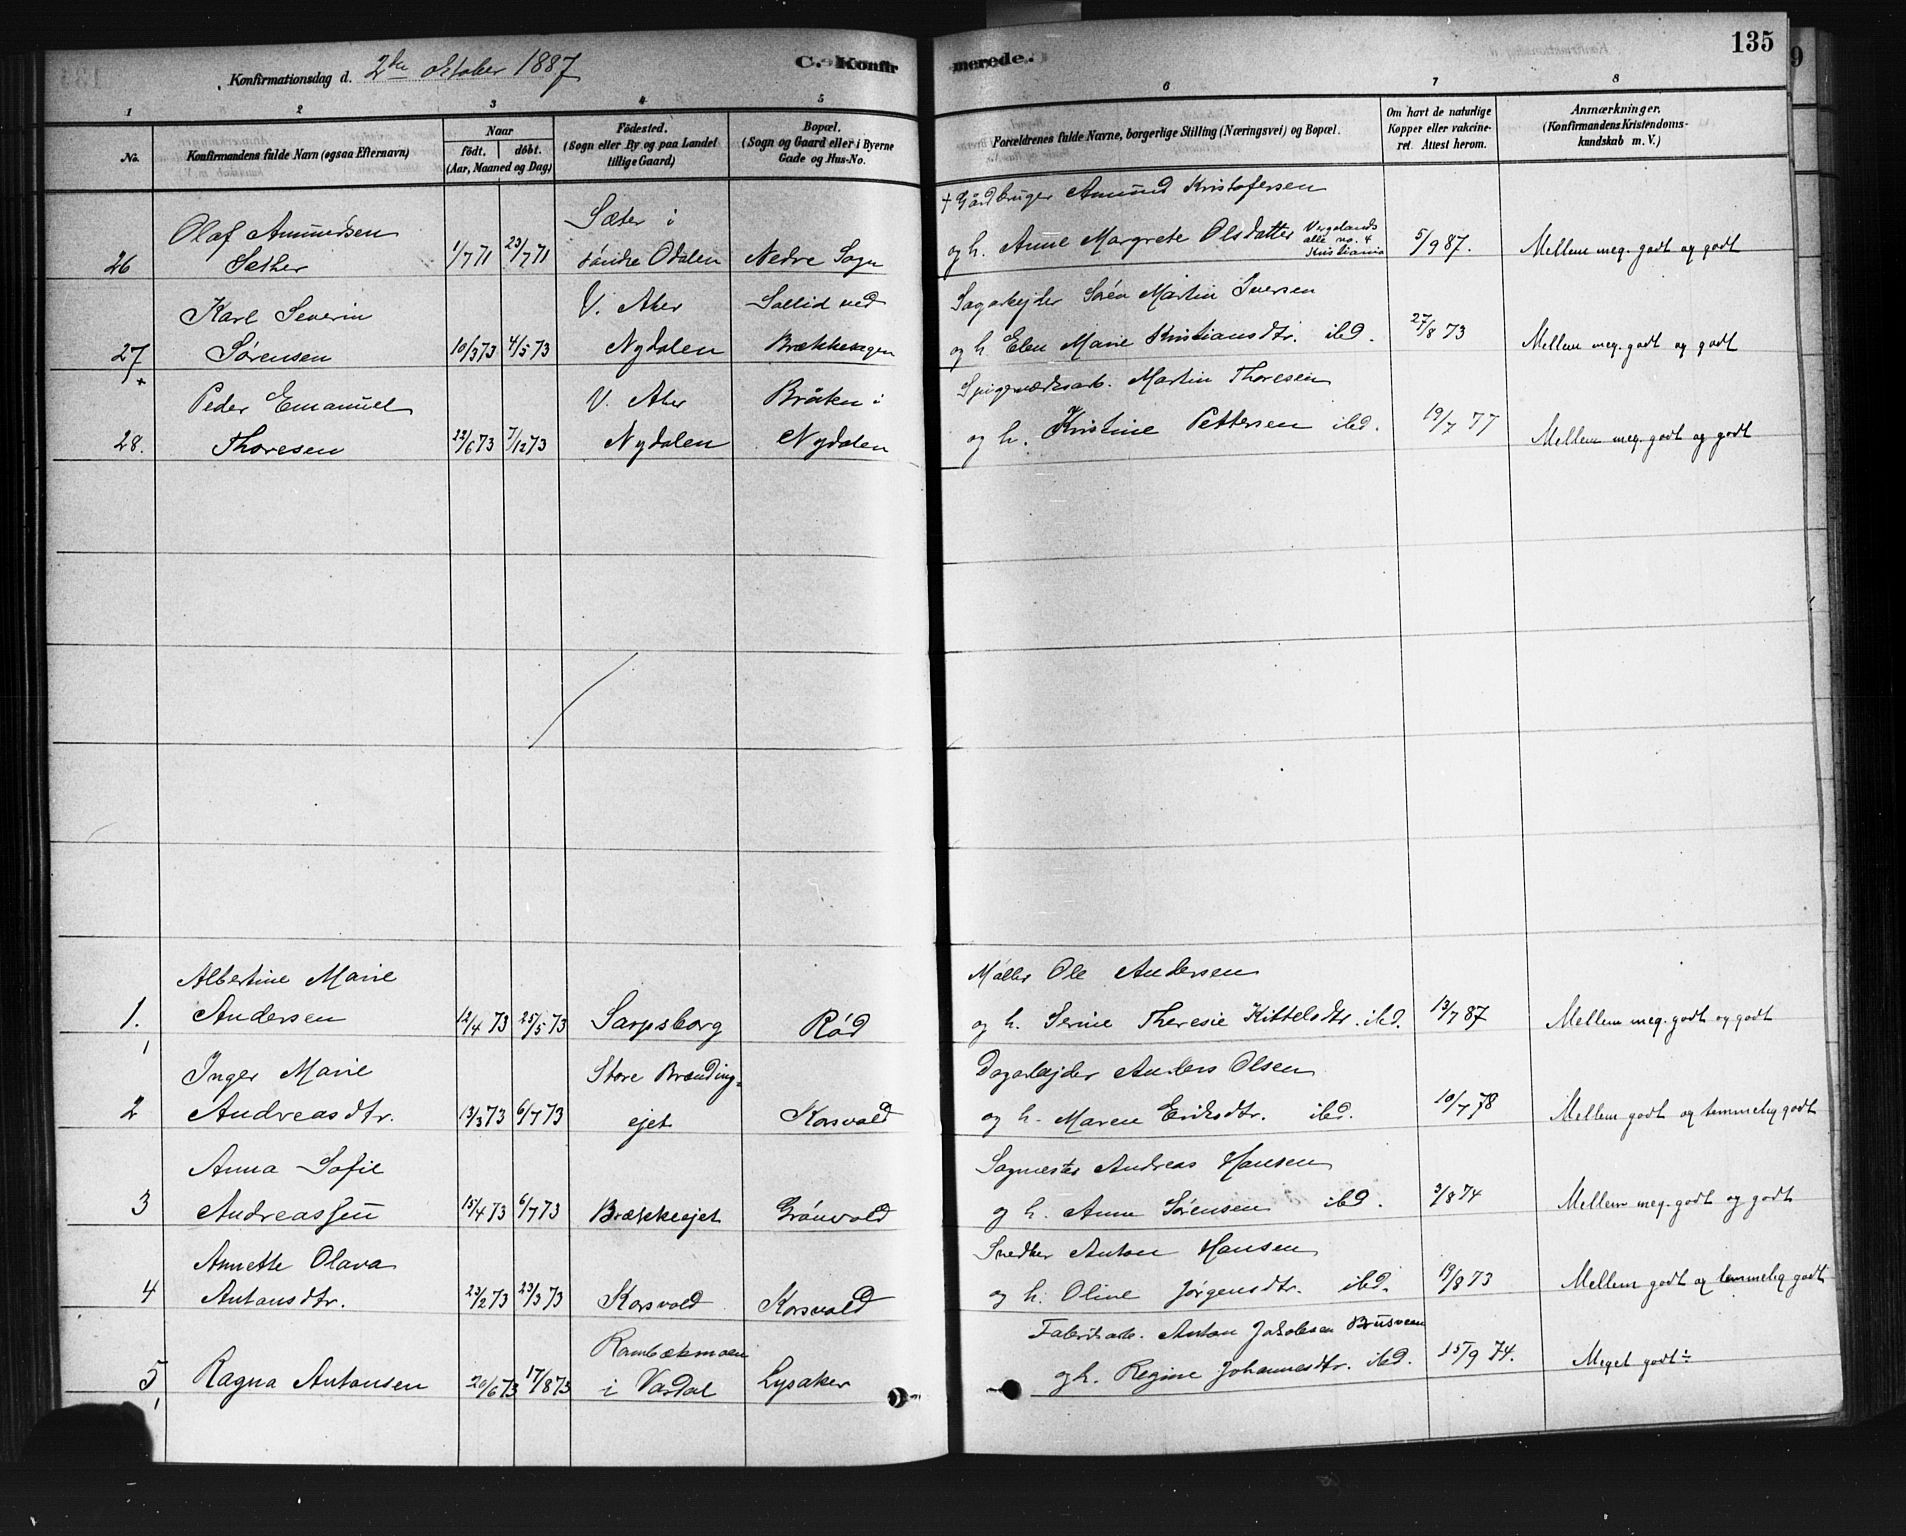 Konfirmationsdag d. 2den oktober 1887
C. Konfirmerede.
135
1 2 3 4 5 6 7 8
No.
Konfirmandens fulde Navn (ogsaa Efternavn)
Naar
födt. döbt.
(Aar, Maaned og Dag)
Födested.
(Sogn eller By og paa Landet
tillige Gaard)
Bopæl.
(Sogn og Gaard eller i Byerne
Gade og Hus-No.
Forældrenes fulde Navne, borgerlige Stilling (Næringsvei) og Bopæl.
Om havt de naturlige
Kopper eller vakcine-
ret. Attest herom.
Anmærkninger.
(Konfirmandens Kristendoms-
kundskab m. V.)
Olaf Amundsen Sæter i + Gårdbruger Amund Kristofersen
26 Sæther 1/7 71 23/7 71 söndre Odalen Nedre Sogn og h. Anne Margrete Olsdatter Vergelands alle no. 4 Kristiania 5/9 87. Mellem meg. godt og godt
Karl Severin V. Aker Sollid ved Sagarbejder Sören Martin Iversen
27 Sørensen 10/3 73 4/5 73 Nydalen Brækkesagen og h. Elen Marie Kristiansdtr. ibd. 27/8 73 Mellem meg. godt og godt
Peder Emanuel V. Aker Bråten i Martin Thoresen
28. Thoresen 22/6 73 7/12 73 Nydalen Nydalen og h. Kristine Pettersen ibd. 19/7 77 Mellem meg. godt og godt
Albertine Marie Möller Ole Andersen
1. Andersen 12/4 73 25/5 73 Sarpsborg Röd og h. Serine Theresie Kittelsdtr. ibd. 13/7 87 Mellem meg. godt og godt
Inger Marie Store Brænding- Dagarbejder Anders Olsen
2 Andreasdtr. 13/3 73 6/7 73 ejet Korsvold og h. Maren Eriksdtr. ibd. 10/7 78 Mellem godt og temmelig godt
Anna Sofie Sagmester Andreas Hansen
3 Andreassen 15/4 73 6/7 73 Brækkeejet Grönvold og h. Anne Sørensen ibd. 3/8 74 Mellem meg. godt og godt
Annette Olava Snedker Anton Hansen
4 Antonsdtr. 23/2 73 23/3 73 Korsvold Korsvold og h. Oline Jørgensdtr. ibd. 19/8 73 Mellem godt og temmelig godt
Rambækmoen Fabrikarb. Anton Jakobsen Brusveen
5 Ragna Antonsen 20/6 73 17/8 73 i Vardal Lysaker og h. Regine Johannesdtr. ibd. 15/9 74. Meget godt÷